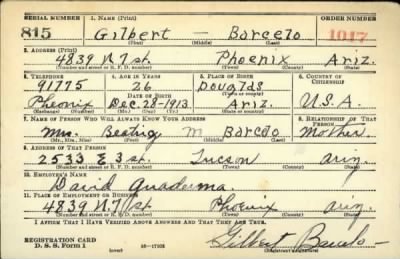 SERIAL NUMBER 1. NAME (Print) ORDER NUMBER
815 Gilbert — Barcelo 1017
(First) (Middle) (Last)
2. ADDRESS (Print)
4839 N. 7 st. Phoenix Ariz.
(Number and street or R. F. D. number) (Town) (County) (State)
3. TELEPHONE 4. AGE IN YEARS 5. PLACE OF BIRTH 6. COUNTRY OF CITIZENSHIP
91775 26 Douglds
DATE OF BIRTH
Pheonix Dec-28-1913 Ariz U.S.A.
(Exchange) (Number) (Mo.) (Day) (Yr.) (State or country)
7. NAME OF PERSON WHO WILL ALWAYS KNOW YOUR ADDRESS 8. RELATIONSHIP OF THAT PERSON
Mrs. M Barcelo Mother.
(Mr., Mrs., Miss) (First) (Middle) (Last)
9. ADDRESS OF THAT PERSON
2533 E 3 st. Tucson ariz.
(Number and street or R. F. D. number) (Town) (County) (State)
10. EMPLOYER'S NAME
David
11. PLACE OF EMPLOYMENT OR BUSINESS
4839 N. 7 st Phoenix ariz.
(Number and street or R. F. D. number) (Town) (County) (State)
I AFFIRM THAT I HAVE VERIFIED ABOVE ANSWERS AND THAT THEY ARE TRUE.
REGISTRATION CARD
D. S. S. Form 1 (over) Gilbert Barcelo
(Registrant's signature)